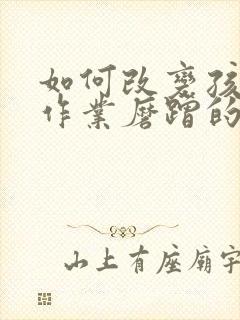 如何改变孩
作业磨蹭的
山上有座庙宇